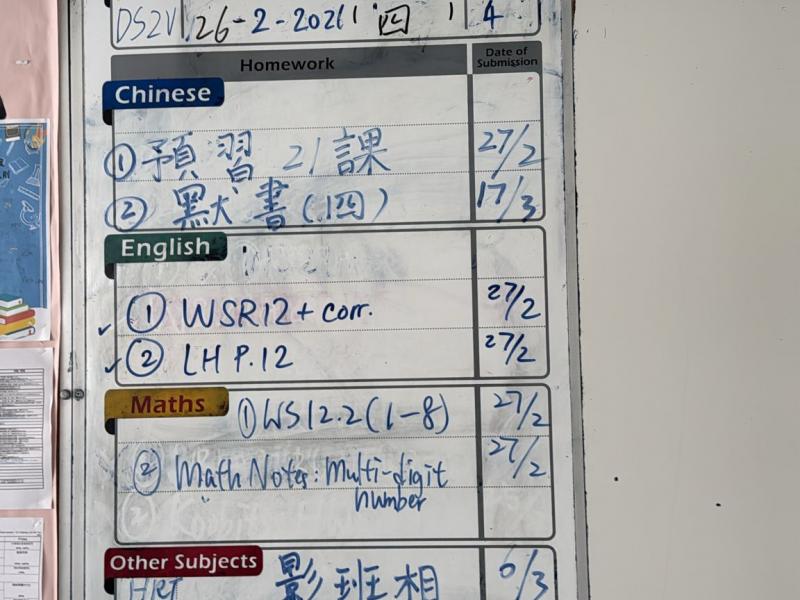 DS2V 26-2-2026 (四) 4
Homework Date of Submission
Chinese
① 預習 21 課 27/2
② 默書 (四) 17/3
English
① WSR12 + corr. 27/2
② LH P.12 27/2
Maths ① WS12.2 (1-8) 27/2
② Math Notes: multi-digit number 27/2
Other Subjects
HRT 影班相 6/3